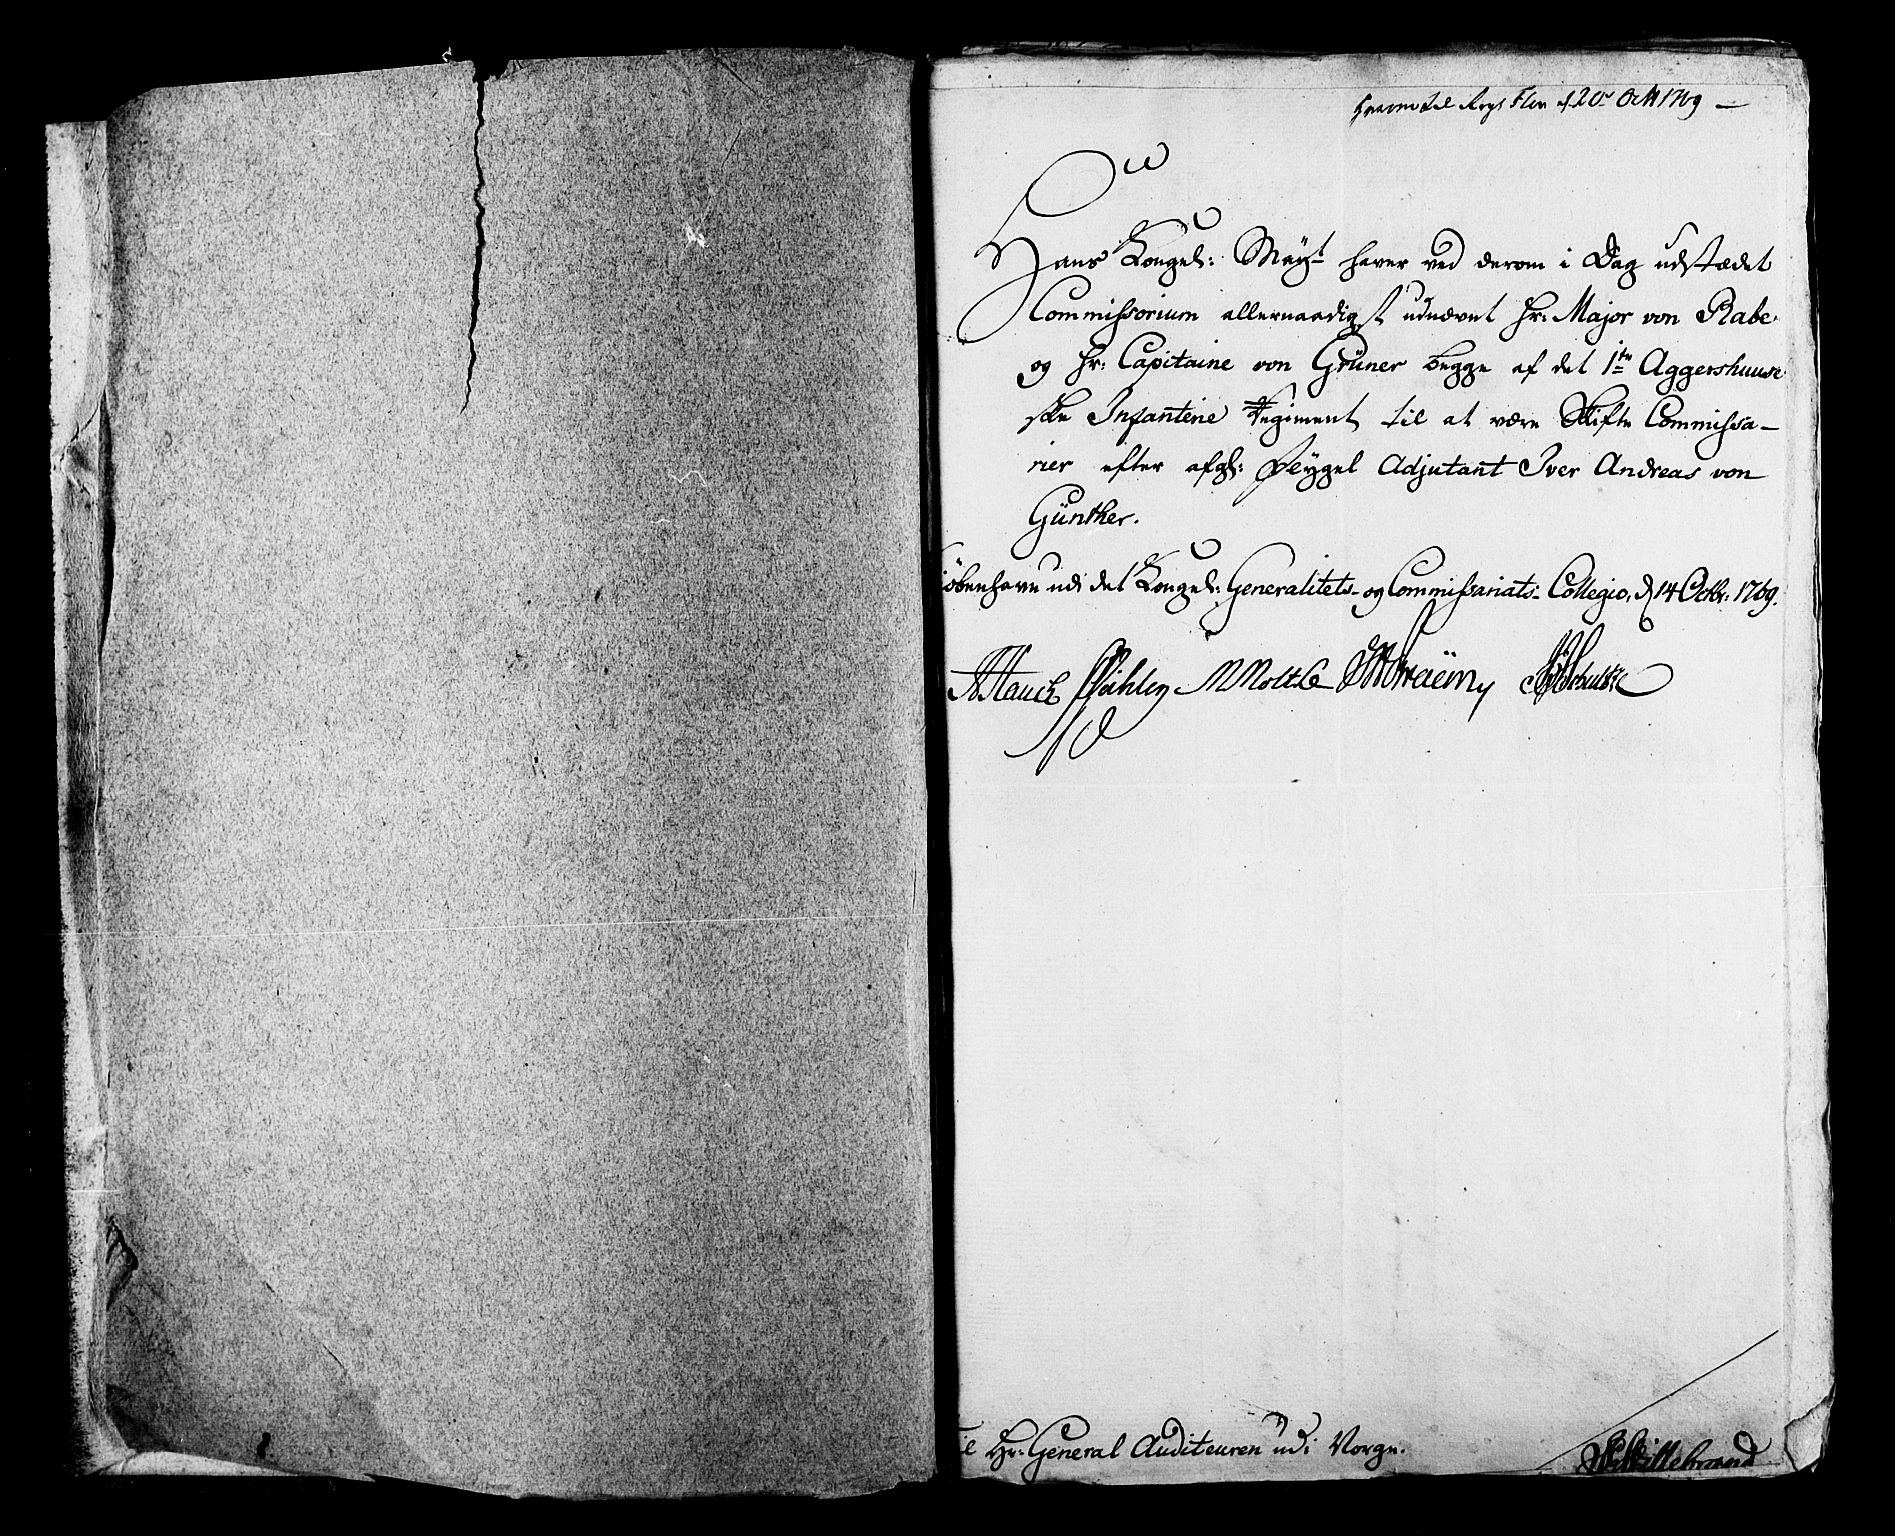 d 20 Octbr 1769 —
Hans Kongel: Mayt haver ved derom i Dag udstædet
Commissorium allernaadigst udnævnt Hr: Major von Rabe
og Hr: Capitaine von Grüner begge af det 1te Aggershuusi-
ske Infanterie Regiment til at være Skifte Commissa-
rier efter afgl: Fløygel Adjutant Iver Andreas von
Günther.
Kiöbenhavn udi det Kongel: Generalitets- og Commissariats-Collegio, d 14 Octbr: 1769.
Hauch MMoltke Schultze
Til Hr: General Auditeuren udi Norge.
Hillebrand